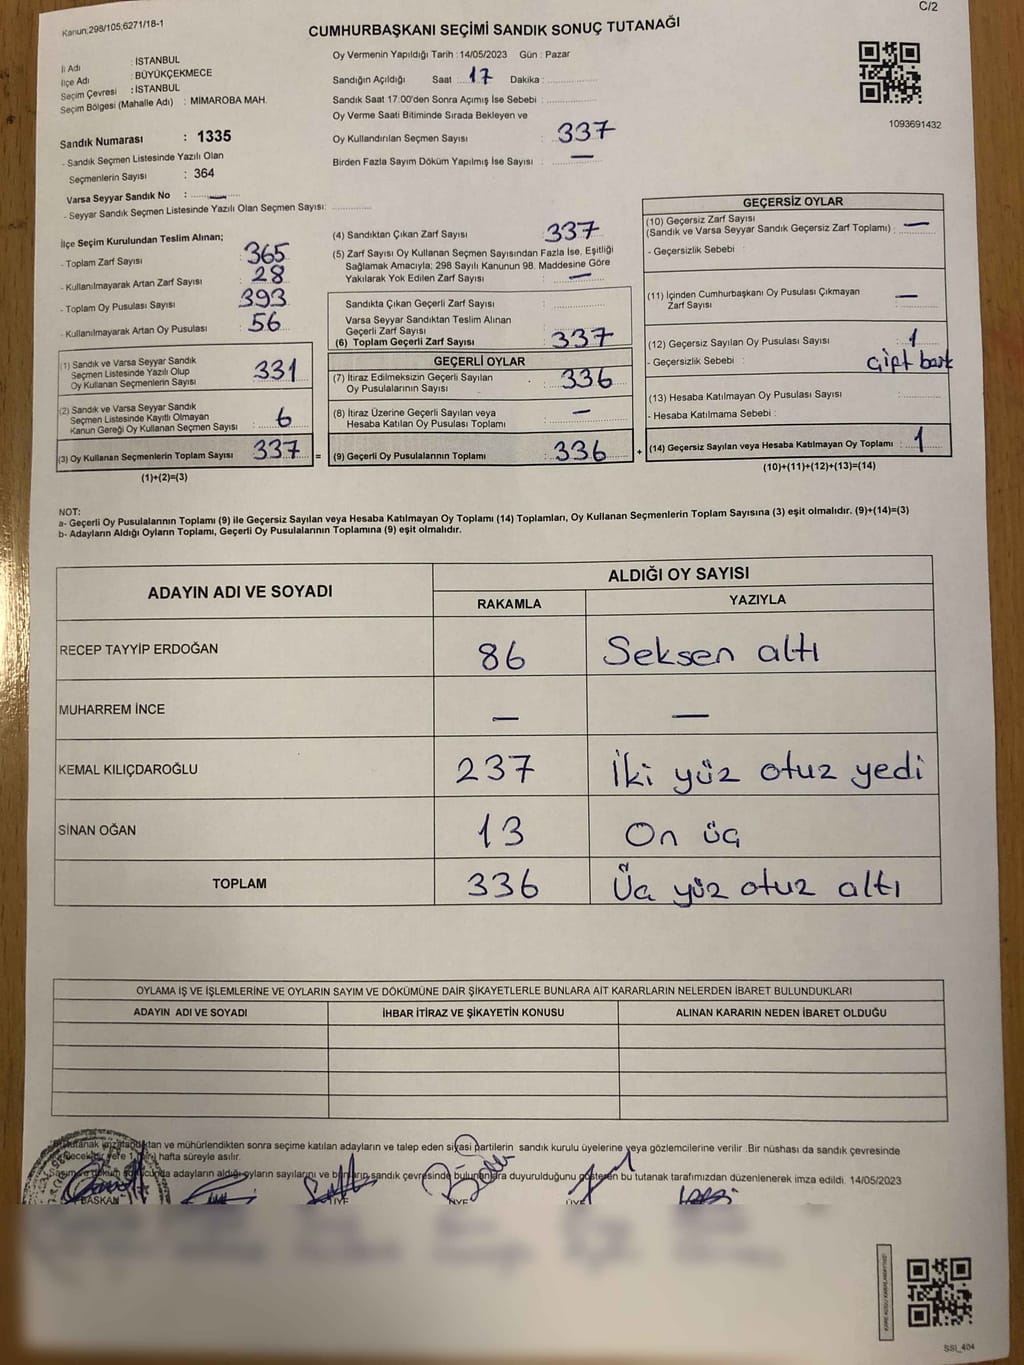 Kanun;298/105;6271/18-1
C/2
CUMHURBAŞKANI SEÇİMİ SANDIK SONUÇ TUTANAĞI
İl Adı : İSTANBUL
İlçe Adı : BÜYÜKÇEKMECE
Seçim Çevresi : İSTANBUL
Seçim Bölgesi (Mahalle Adı) : MİMAROBA MAH.
Sandık Numarası : 1335
- Sandık Seçmen Listesinde Yazılı Olan
Seçmenlerin Sayısı : 364
Varsa Seyyar Sandık No : —
- Seyyar Sandık Seçmen Listesinde Yazılı Olan Seçmen Sayısı:
Oy Vermenin Yapıldığı Tarih : 14/05/2023 Gün : Pazar
Sandığın Açıldığı Saat 17 Dakika :
Sandık Saat 17:00'den Sonra Açımış İse Sebebi :
Oy Verme Saati Bitiminde Sırada Bekleyen ve
Oy Kullandırılan Seçmen Sayısı : 337
Birden Fazla Sayım Döküm Yapılmış İse Sayısı : —
1093691432
İlçe Seçim Kurulundan Teslim Alınan;
- Toplam Zarf Sayısı : 365
- Kullanılmayarak Artan Zarf Sayısı : 28
- Toplam Oy Pusulası Sayısı : 393
- Kullanılmayarak Artan Oy Pusulası : 56
(1) Sandık ve Varsa Seyyar Sandık
Seçmen Listesinde Yazılı Olup
Oy Kullanan Seçmenlerin Sayısı : 331
(2) Sandık ve Varsa Seyyar Sandık
Seçmen Listesinde Kayıtlı Olmayan
Kanun Gereği Oy Kullanan Seçmen Sayısı : 6
(3) Oy Kullanan Seçmenlerin Toplam Sayısı : 337 =
(1)+(2)=(3)
(4) Sandıktan Çıkan Zarf Sayısı : 337
(5) Zarf Sayısı Oy Kullanan Seçmen Sayısından Fazla İse, Eşitliği
Sağlamak Amacıyla; 298 Sayılı Kanunun 98. Maddesine Göre
Yakılarak Yok Edilen Zarf Sayısı : —
Sandıkta Çıkan Geçerli Zarf Sayısı :
Varsa Seyyar Sandıktan Teslim Alınan
Geçerli Zarf Sayısı :
(6) Toplam Geçerli Zarf Sayısı : 337
GEÇERLİ OYLAR
(7) İtiraz Edilmeksizin Geçerli Sayılan
Oy Pusulalarının Sayısı : 336
(8) İtiraz Üzerine Geçerli Sayılan veya
Hesaba Katılan Oy Pusulası Toplamı : —
(9) Geçerli Oy Pusulalarının Toplamı : 336 +
GEÇERSİZ OYLAR
(10) Geçersiz Zarf Sayısı
(Sandık ve Varsa Seyyar Sandık Geçersiz Zarf Toplamı) : —
- Geçersizlik Sebebi :
(11) İçinden Cumhurbaşkanı Oy Pusulası Çıkmayan
Zarf Sayısı : —
(12) Geçersiz Sayılan Oy Pusulası Sayısı : 1
- Geçersizlik Sebebi : çift bask
(13) Hesaba Katılmayan Oy Pusulası Sayısı :
- Hesaba Katılmama Sebebi :
(14) Geçersiz Sayılan veya Hesaba Katılmayan Oy Toplamı : 1
(10)+(11)+(12)+(13)=(14)
NOT:
a- Geçerli Oy Pusulalarının Toplamı (9) ile Geçersiz Sayılan veya Hesaba Katılmayan Oy Toplamı (14) Toplamları, Oy Kullanan Seçmenlerin Toplam Sayısına (3) eşit olmalıdır. (9)+(14)=(3)
b- Adayların Aldığı Oyların Toplamı, Geçerli Oy Pusulalarının Toplamına (9) eşit olmalıdır.
ADAYIN ADI VE SOYADI
ALDIĞI OY SAYISI
RAKAMLA YAZIYLA
RECEP TAYYİP ERDOĞAN 86 Seksen altı
MUHARREM İNCE — —
KEMAL KILIÇDAROĞLU 237 İki yüz otuz yedi
SİNAN OĞAN 13 On üç
TOPLAM 336 Üç yüz otuz altı
OYLAMA İŞ VE İŞLEMLERİNE VE OYLARIN SAYIM VE DÖKÜMÜNE DAİR ŞİKAYETLERLE BUNLARA AİT KARARLARIN NELERDEN İBARET BULUNDUKLARI
ADAYIN ADI VE SOYADI İHBAR İTİRAZ VE ŞİKAYETİN KONUSU ALINAN KARARIN NEDEN İBARET OLDUĞU
ve mühürlendikten sonra seçime katılan adayların ve talep eden siyasi partilerin sandık kurulu üyelerine veya gözlemcilerine verilir .Bir nüshası da sandık çevresinde
hafta süreyle asılır.
adayların aldığı oyların sayılarını ve bunların sandık çevresinde bulunanlara duyurulduğunu gösteren bu tutanak tarafımızdan düzenlenerek imza edildi. 14/05/2023
BAŞKAN ÜYE ÜYE ÜYE
SSI_404